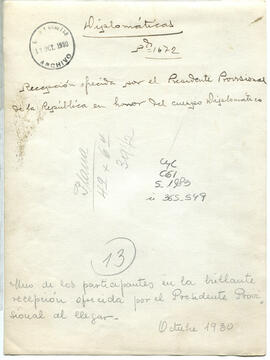 Diplomáticas
1672
17 OCT. 1930
ARCHIVO
Recepción ofrecida por el Presidente Provisional
de la República en honor del cuerpo Diplomático
Plana
42 + 64
3972
C61
S_1983
ii 365_549
13
Uno de los participantes en la brillante
recepción ofrecida por el Presidente Provi
sional al llegar.
Octubre 1930